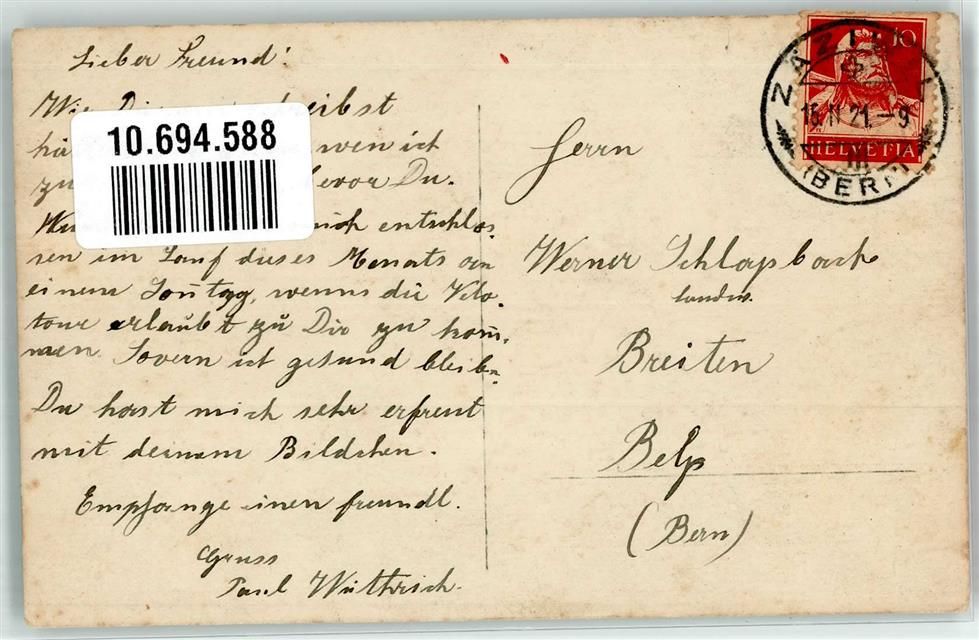 Lieber Freund!
Wie Du
10.694.588
wen ich
zu bevor Du.
mich entschlos,
sen im Lauf dieses Monats an
einem Sontag, wenns die Velo-
tour erlaubt zu Dir zu kom,
men. Sovern ich gesund bleibe.
Du hast mich sehr erfreut
mit deinem Bildchen.
Empfange einen freundl.
Gruss
Paul Wüthrich.
10
HELVETIA
ZÄZIWIL
15.IV.21.-9
(BERN)
Herrn
Werner Schlapbach
landw.
Breiten
Belp
(Bern)